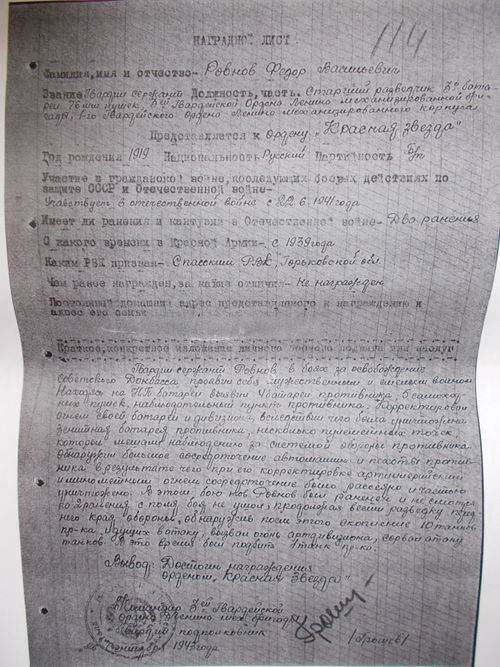 114
НАГРАДНОЙ ЛИСТ
Фамилия, имя и отчество- Ровнов Федор Васильевич
Звание Гвардии сержант Должность, часть. Старший разведчик 3й бата-
реи 76 мм пушек, Гвардейской Ордена Ленина механизированной бри-
гады, 1-го Гвардейского Ордена Ленина механизированного корпуса
Представляется к Ордену "Красная звезда"
Год рождения 1919 Национальность Русский Партийность б/п
Участие в гражданской войне, последующих боевых действиях по
защите СССР и отечественной войне-
Участвует в отечественной войне с 22.6.1941 года
Имеет ли ранения и контузии в Отечественной войне- Два ранения
С какого времени в Красной Армии- с 1939 года
Каким РВК призван- Спасским РВК, Горьковской обл.
Чем ранее награжден, за какие отличия- Не награжден
Постоянный домашний адрес представляемого к награждению и
адрес его семьи
Краткое, конкретное изложение личного боевого подвига или заслуг
Гвардии сержант Ровнов в боях за освобождение
Советского Донбасса проявил себя мужественным и смелым воином
Находясь на НП батареи выявил батареи противника, 5 самоход-
ных пушек, наблюдательный пункт противника. Корректировал
огнем своей батареи и дивизиона, вследствии чего была уничтожена
зенитная батарея противника, несколько пулеметных точек,
которые мешали наблюдению за системой обороны противника
Обнаружил большое сосредоточение автомашин и пехоты против-
ника в результате чего при его корректировке артиллерийским
и минометным огнем сосредоточение было рассеяно и частично
уничтожено. В этом бою тов Ровнов был ранен и не смотря
на 2 ранения с поля боя не ушел, продолжая вести разведку перед-
него края обороны, обнаружив после этого скопление 10 танков
пр-ка идущих в атаку, вызвал огонь артдивизиона, сорвал атаку
танков. В это время был подбит 1 танк пр-ка.
Вывод: Достоин награждения
орденом "Красная Звезда"
Командир 3ей Гвардейской
ордена Ленина мех. бригады
Гвардии подполковник
сентября 1943 года